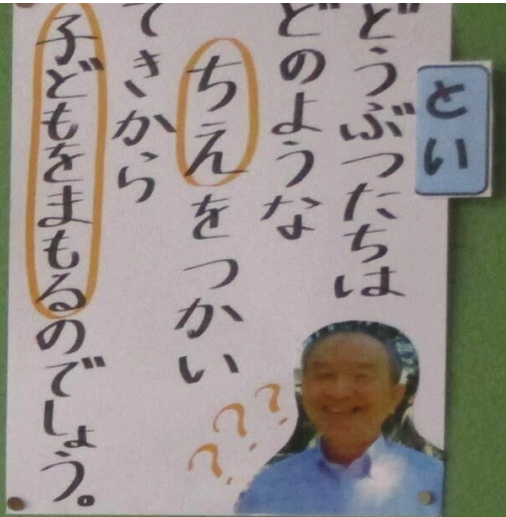 とい
どうぶつたちは
どのような
ちえをつかい
てきから
子どもをまもるのでしょう。
???